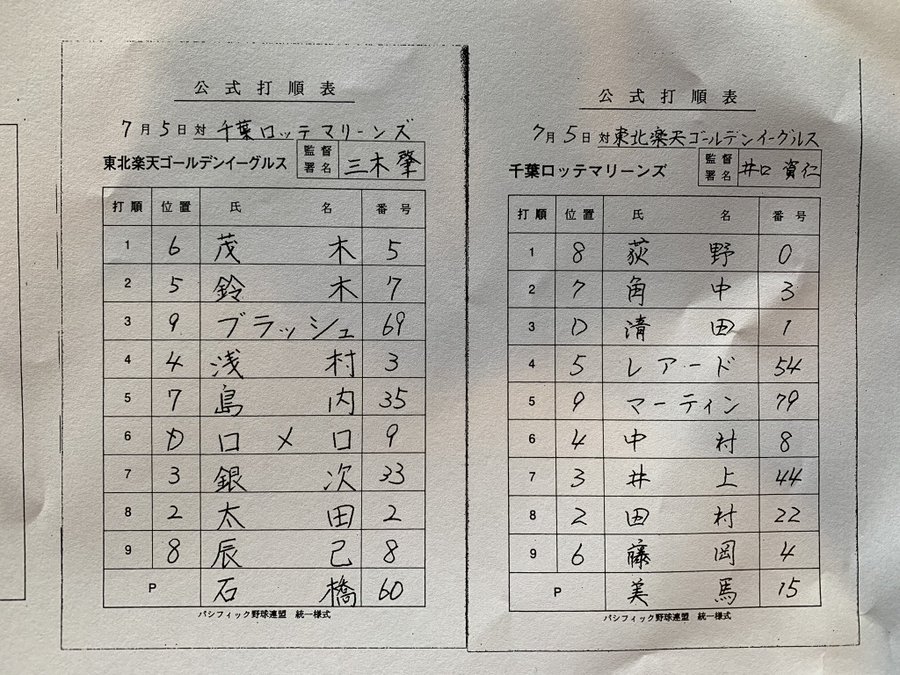 公式打順表
7月5日対 千葉ロッテマリーンズ
東北楽天ゴールデンイーグルス 監督署名 三木肇
打順 位置 氏名 番号
1 6 茂木 5
2 5 鈴木 7
3 9 ブラッシュ 69
4 4 浅村 3
5 7 島内 35
6 D ロメロ 9
7 3 銀次 33
8 2 太田 2
9 8 辰己 8
P 石橋 60
パシフィック野球連盟 統一様式
公式打順表
7月5日対 東北楽天ゴールデンイーグルス
千葉ロッテマリーンズ 監督署名 井口資仁
打順 位置 氏名 番号
1 8 荻野 0
2 7 角中 3
3 D 清田 1
4 5 レアード 54
5 9 マーティン 79
6 4 中村 8
7 3 井上 44
8 2 田村 22
9 6 藤岡 4
P 美馬 15
パシフィック野球連盟 統一様式